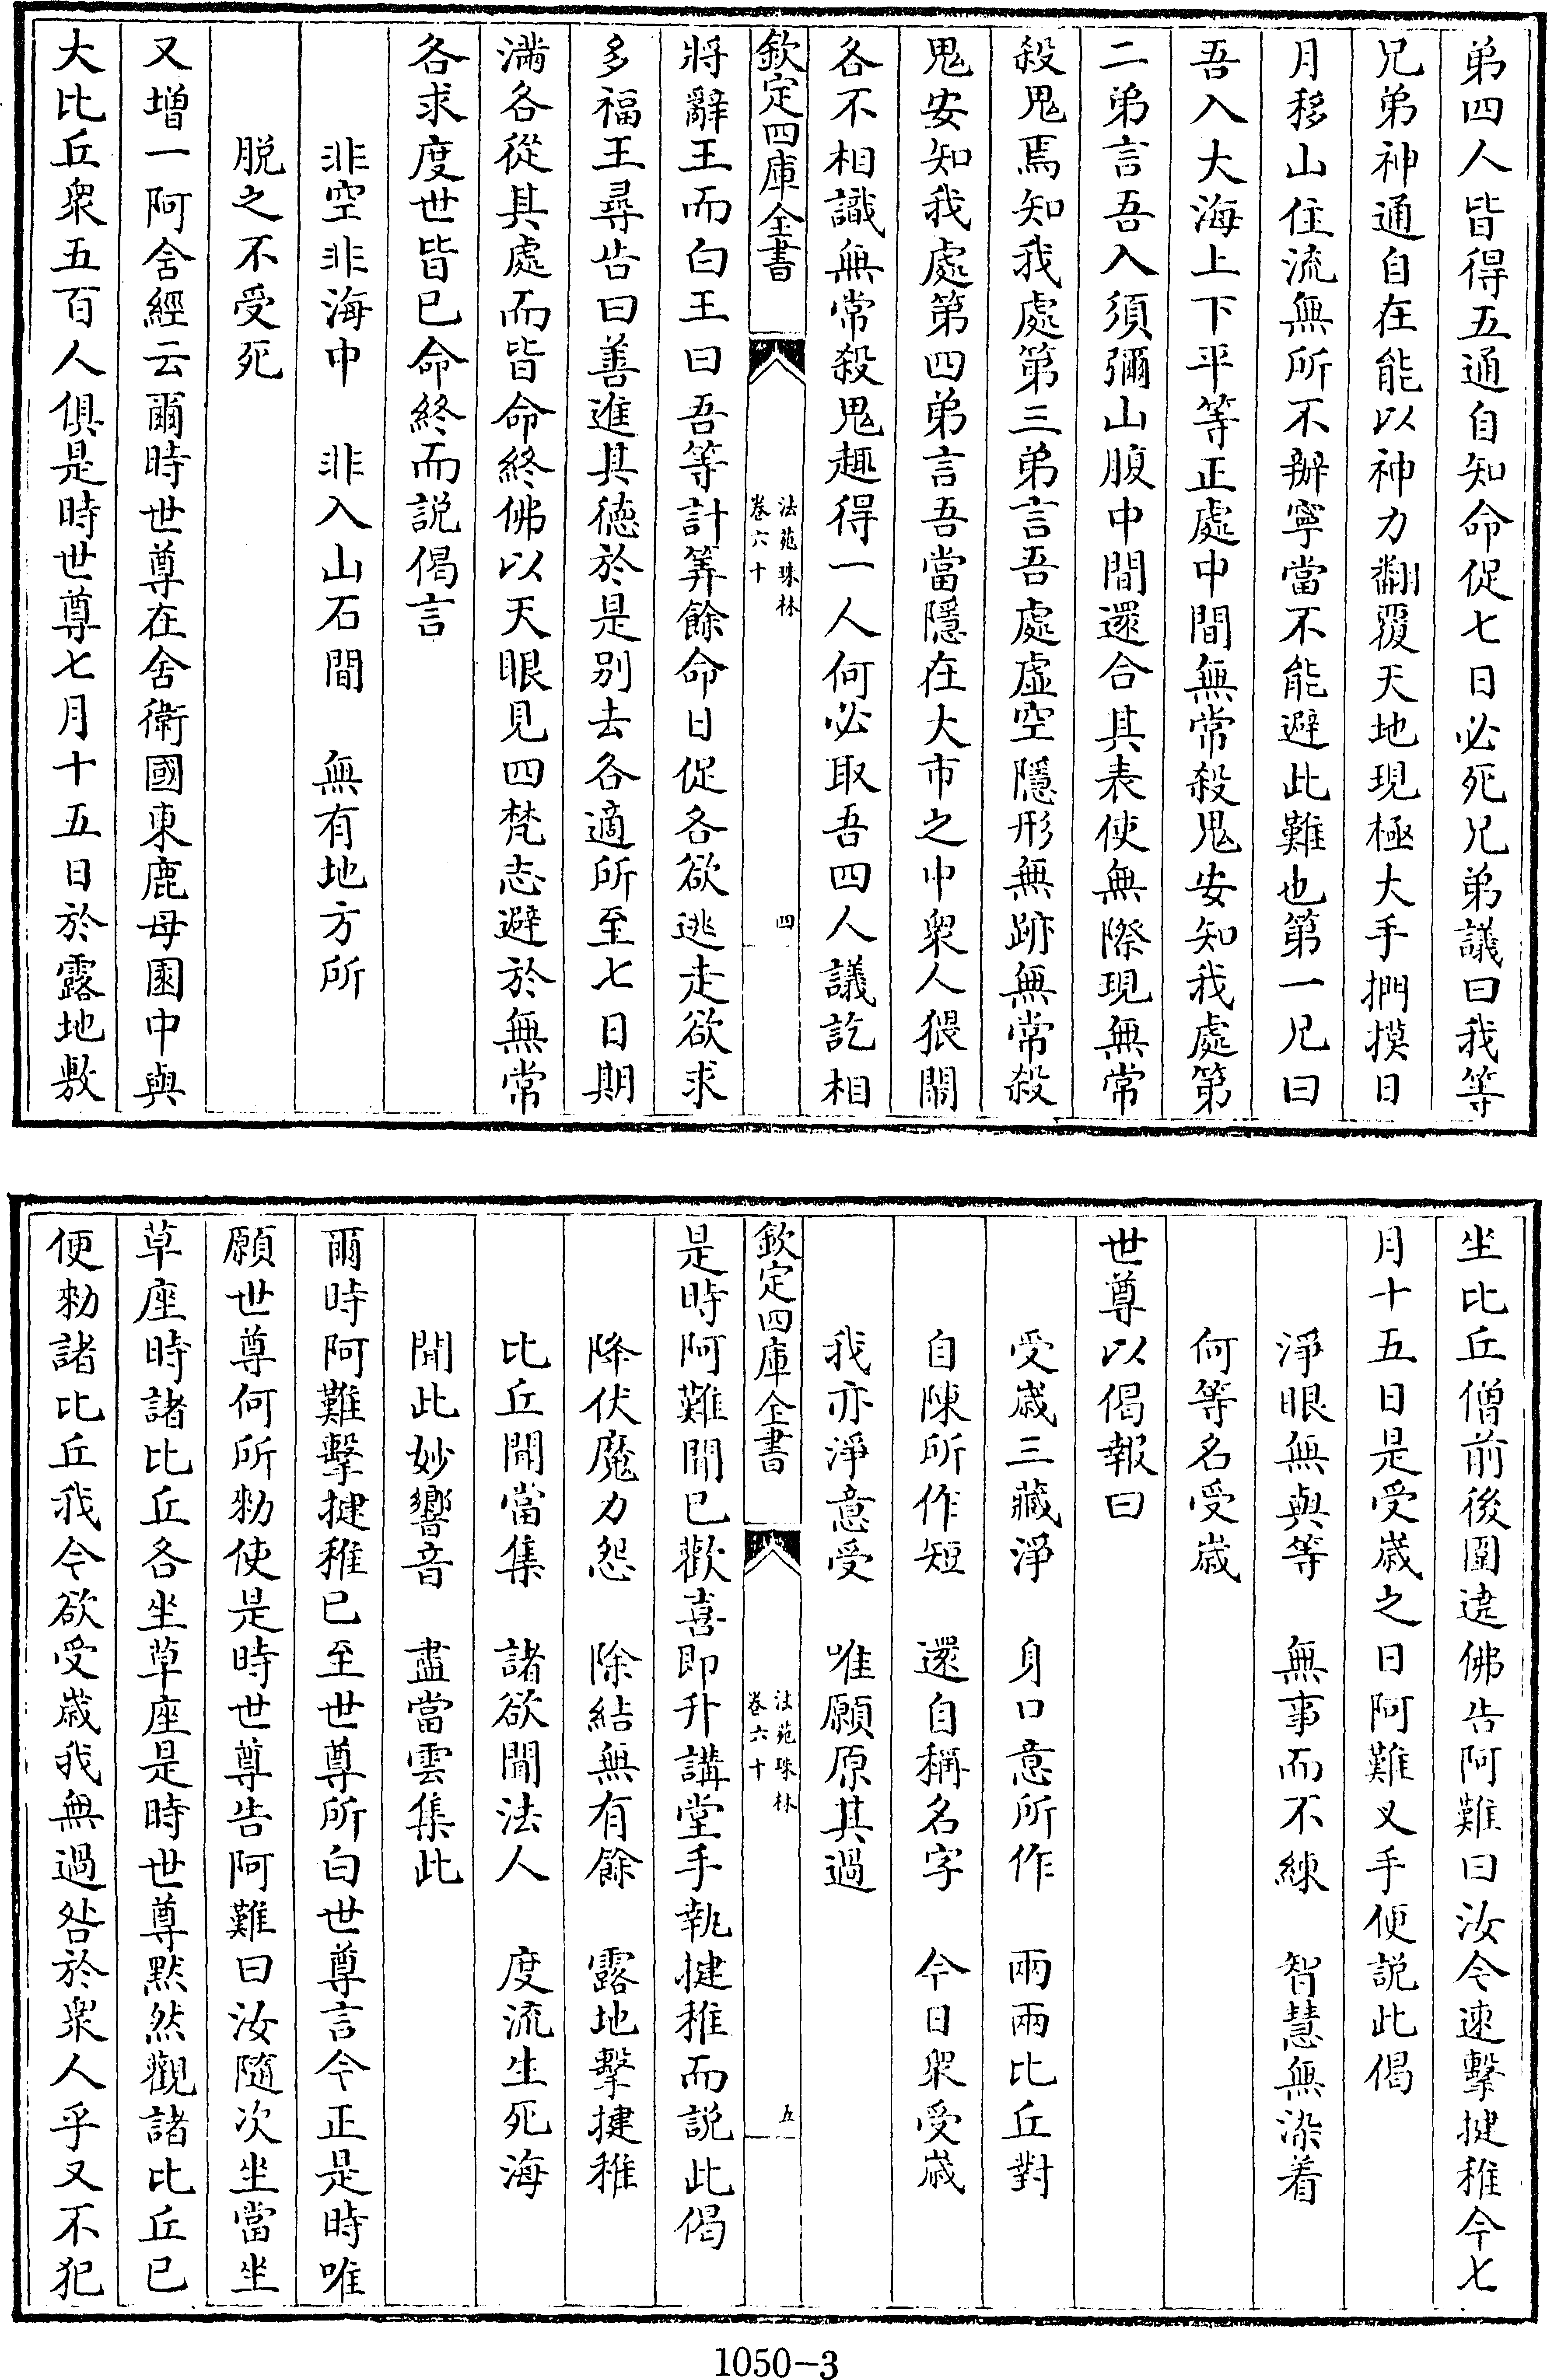 弟四人皆得五通自知命促七日必死兄弟議曰我等
兄弟神通自在能以神力翻覆天地現極大手捫摸日
月移山住流無所不辦寧當不能避此難也第一兄曰
吾入大海上下平等正處中間無常殺鬼安知我處第
二弟言吾入須彌山腹中間還合其表使無際現無常
殺鬼焉知我處第三弟言吾處虛空隱形無跡無常殺
鬼安知我處第四弟言吾當隱在大市之中衆人猥閙
各不相識無常殺鬼趣得一人何必取吾四人議訖相
欽定四庫全書
法苑珠林
卷六十
四
將辭王而白王曰吾等計筭餘命日促各欲逃走欲求
多福王尋告曰善進其德於是别去各適所至七日期
滿各從其處而皆命終佛以天眼見四梵志避於無常
各求度世皆已命終而説偈言
非空非海中　非入山石間　無有地方所
脱之不受死
又增一阿含經云爾時世尊在舍衛國東鹿母園中與
大比丘衆五百人俱是時世尊七月十五日於露地敷
坐比丘僧前後圍遶佛告阿難曰汝今速擊揵稚今七
月十五日是受歲之日阿難叉手便説此偈
淨眼無與等　無事而不練　智慧無染着
何等名受歲
世尊以偈報曰
受歲三藏淨　身口意所作　兩兩比丘對
自陳所作短　還自稱名字　今日衆受歲
我亦淨意受　唯願原其過
欽定四庫全書
法苑珠林
卷六十
五
是時阿難聞已歡喜即升講堂手執揵稚而説此偈
降伏魔力怨　除結無有餘　露地擊揵稚
比丘聞當集　諸欲聞法人　度流生死海
聞此妙響音　盡當雲集此
爾時阿難擊揵稚已至世尊所白世尊言今正是時唯
願世尊何所勑使是時世尊告阿難曰汝隨次坐當坐
草座時諸比丘各坐草座是時世尊黙然觀諸比丘已
便勑諸比丘我今欲受歲我無過咎於衆人乎又不犯
1050-3